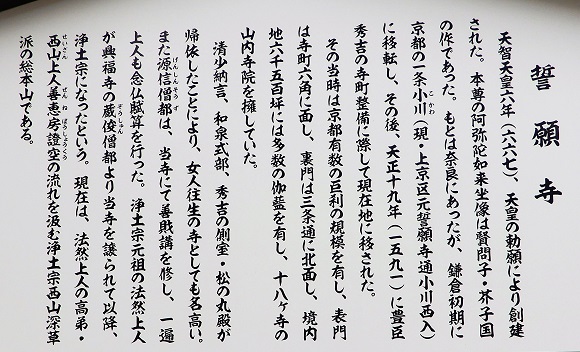 誓願寺
天智天皇六年(六六七)、天皇の勅願により創建
された。本尊の阿弥陀如来坐像は賢問子・芥子国
の作であった。もとは奈良にあったが、鎌倉初期に
京都の一条小川(現・上京区元誓願寺通小川西入)
に移転し、その後、天正十九年(一五九一)に豊臣
秀吉の寺町整備に際して現在地に移された。
その当時は京都有数の巨刹の規模を有し、表門
は寺町六角に面し、裏門は三条通に北面し、境内
地六千五百坪には多数の伽藍を有し、十八ヶ寺の
山内寺院を擁していた。
清少納言、和泉式部、秀吉の側室・松の丸殿が
帰依したことにより、女人往生の寺としても名高い。
また源信僧都は、当寺にて善財講を修し、一遍
上人も念仏賦算を行った。浄土宗元祖の法然上人
が興福寺の蔵俊僧都より当寺を譲られて以降、
浄土宗になったという。現在は、法然上人の高弟・
西山上人善恵房證空の流れを汲む浄土宗西山深草
派の総本山である。
こかわ
げんしんそうず
ぞうしゅん
せいざん
ぜんねぼうしょうくう